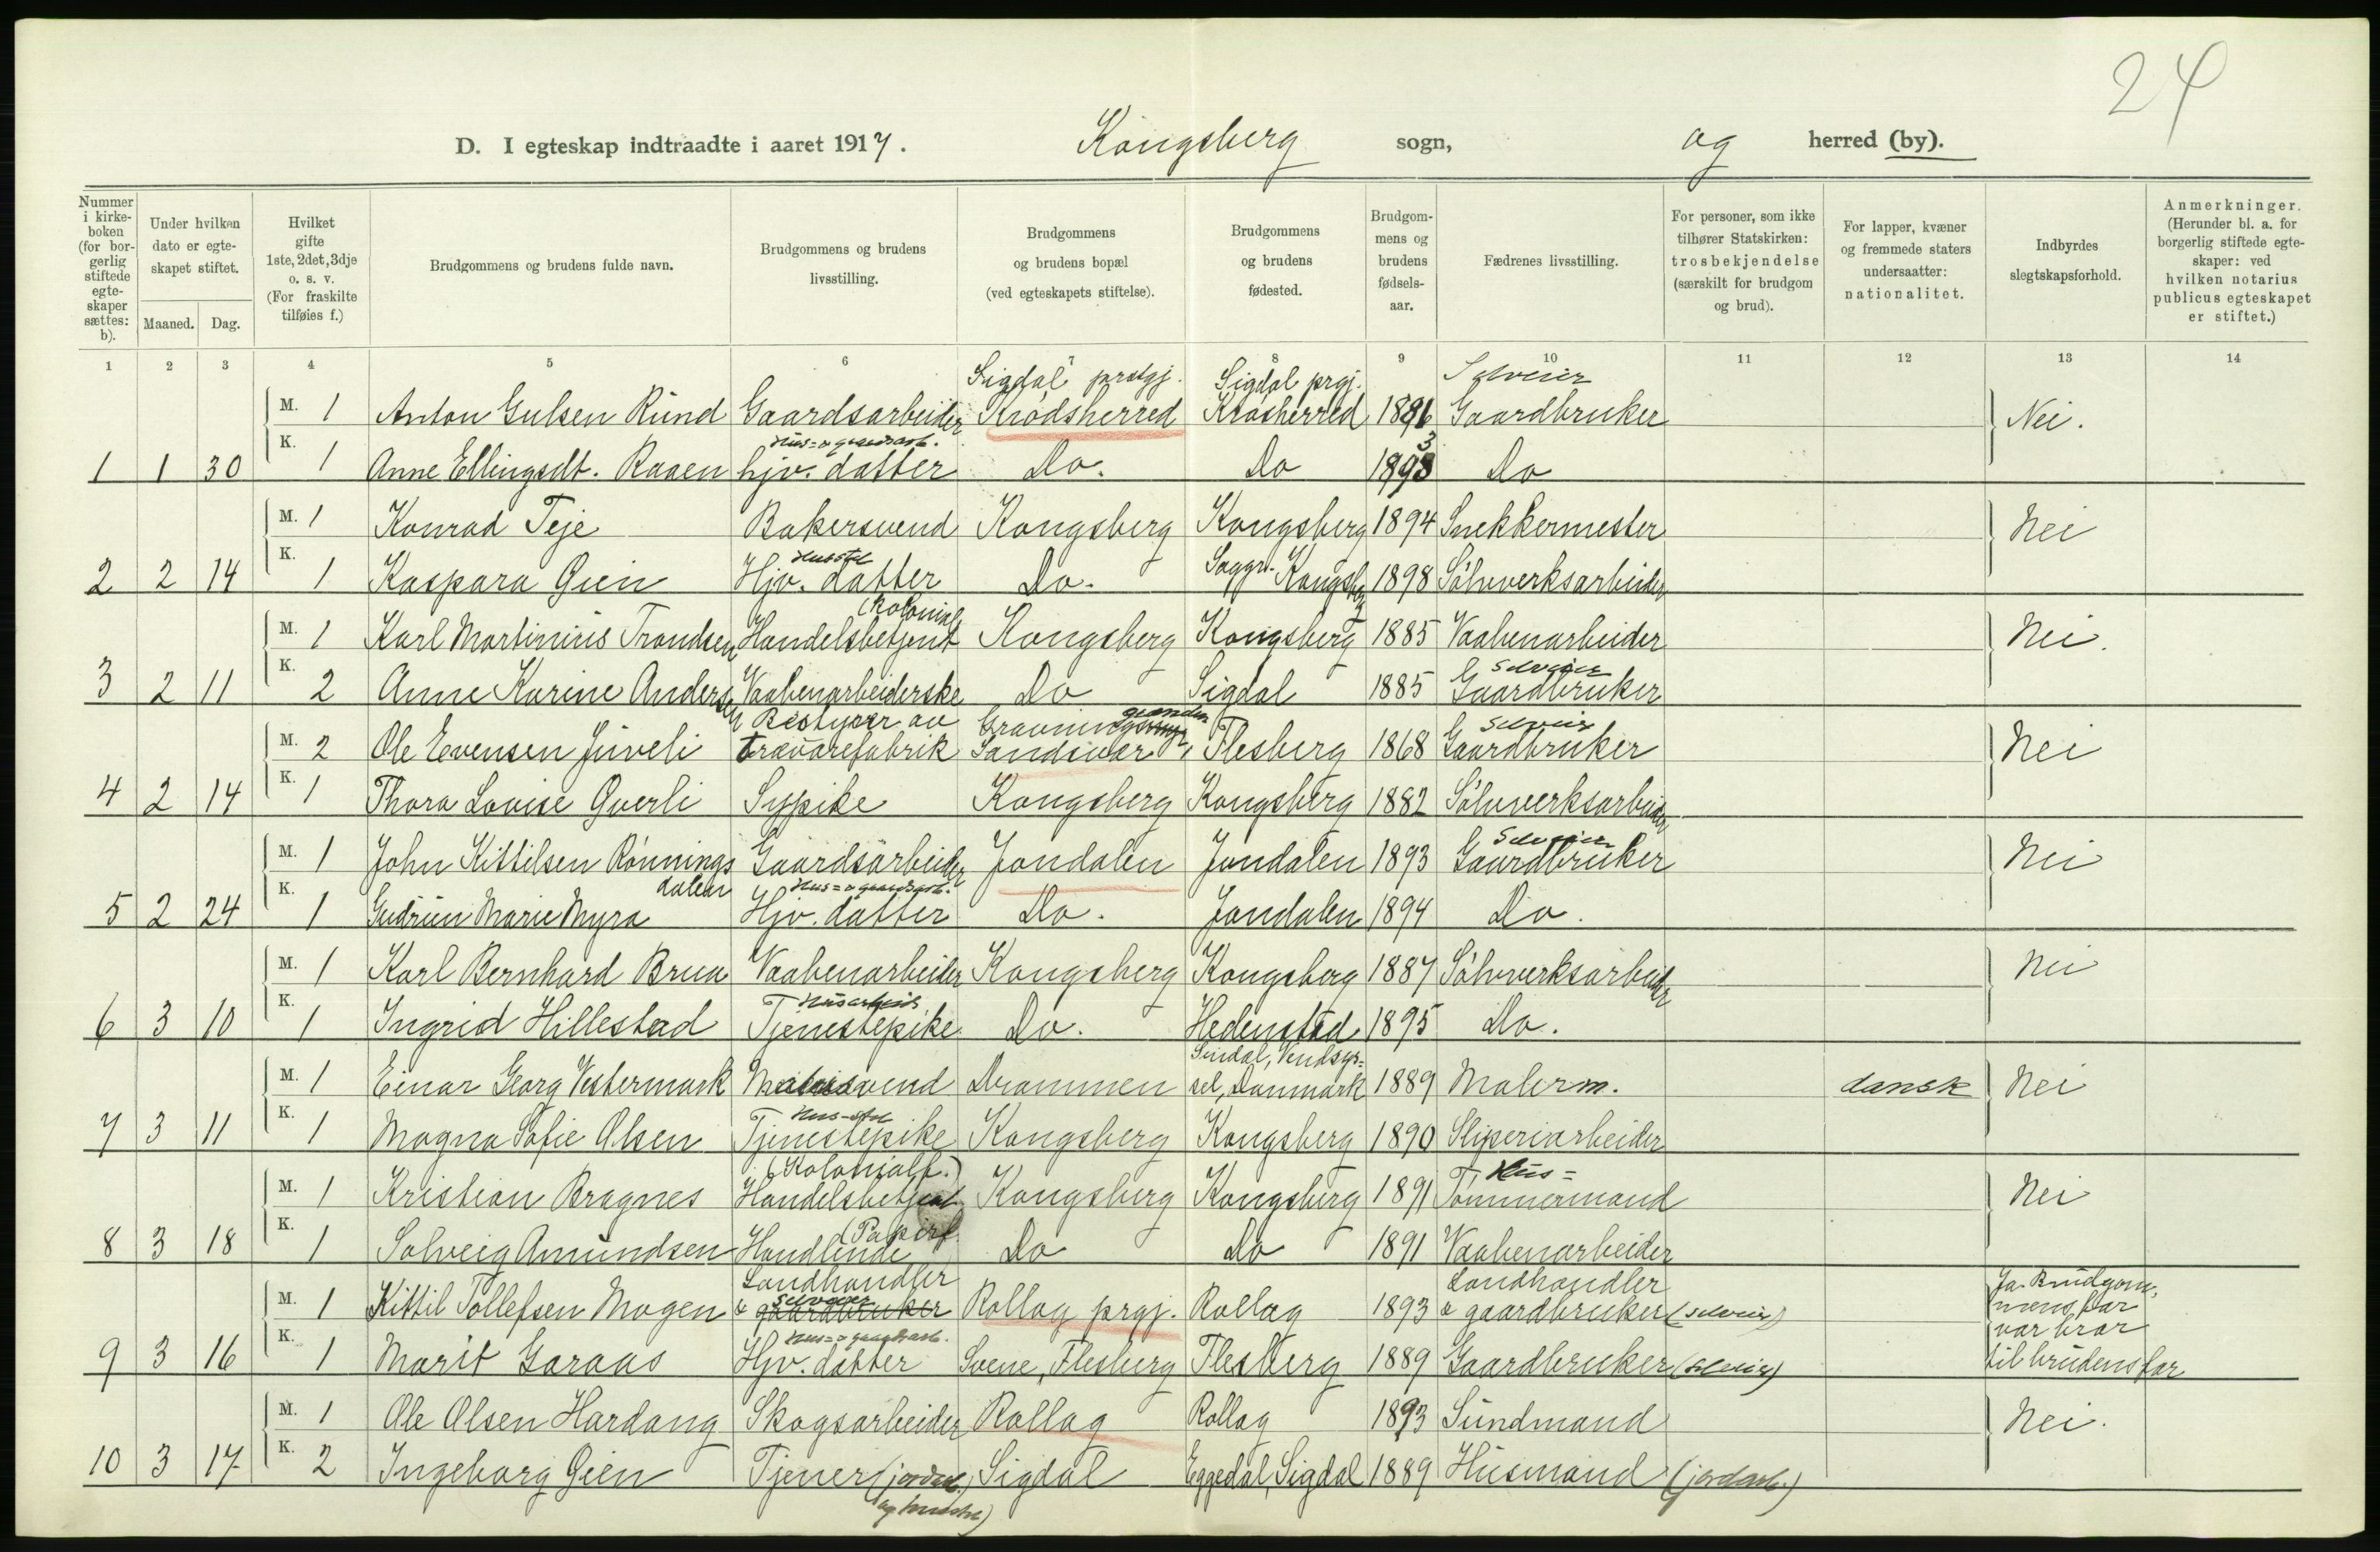 24
D. I egteskap indtraadte i aaret 1917. Kongsberg sogn, og herred (by).
Nummer i kirkeboken (for borgerlig stiftede egteskaper sættes: b).
Under hvilken dato er egteskapet stiftet.
Maaned. Dag.
Hvilket gifte 1ste, 2det, 3dje o. s. v. (For fraskilte tilføies f.)
Brudgommens og brudens fulde navn.
Brudgommens og brudens livsstilling.
Brudgommens og brudens bopæl (ved egteskapets stiftelse).
Brudgommens og brudens fødested.
Brudgommens og brudens fødselsaar.
Fædrenes livsstilling.
For personer, som ikke tilhører Statskirken: trosbekjendelse (særskilt for brudgom og brud).
For lapper, kvæner og fremmede staters undersaatter: nationalitet.
Indbyrdes slegtskapsforhold.
Anmerkninger. (Herunder bl. a. for borgerlig stiftede egteskaper: ved hvilken notarius publicus egteskapet er stiftet.)
1 2 3 4 5 6 7 8 9 10 11 12 13 14
Sigdal prstgj. Sigdal prgj. Selveier
M. 1 Anton Gulsen Rund Gaardsarbeider Krødsherred Krødsherred 1891 Gaardbruker Nei.
Hus= o gaardsarb.
1 1 30 K. 1 Anne Ellingsdt. Raaen hjv. datter Do. Do 1893 Do
M. 1 Konrad Teje Bakersvend Kongsberg Kongsberg 1894 Snekkermester Nei
Husstel
2 2 14 K. 1 Kaspara Gien Hjv. datter Do. Saggr. Kongsberg 1898 Sølvverksarbeider
(Kolonial
M. 1 Karl Martinius Trondsen Handelsbetjent Kongsberg Kongsberg 1885 Vaabenarbeider Nei.
Selveier
3 2 11 K. 2 Anne Karine Andersen Vaabenarbeiderske Do Sigdal 1885 Gaardbruker
Bestyrer av Selveier
M. 2 Ole Evensen Juveli trævarefabrik Sandsvær Flesberg 1868 Gaardbruker Nei
4 2 14 K. 1 Thora Lovise Qverli Sypike Kongsberg Kongsberg 1882 Sølvverksarbeider
Selveier
M. 1 John Kittilsen Rønningsdalen Gaardsarbeider Jondalen Jondalen 1893 Gaardbruker Nei
Hus= o gaardsarb.
5 2 24 K. 1 Gudrun Marie Myra Hjv. datter Do. Jondalen 1894 Do.
M. 1 Karl Bernhard Brua Vaabenarbeider Kongsberg Kongsberg 1887 Sølvverksarbeider Nei
Husarbeide
6 3 10 K. 1 Ingrid Hillestad Tjenestepike Do. Hedenstad 1895 Do.
Sindal, Vendsys=
M. 1 Einar Georg Vestermark Malersvend Drammen sel, Danmark 1889 Malerm. dansk Nei
Hus-stel
7 3 11 K. 1 Magna Sofie Olsen Tjenestepike Kongsberg Kongsberg 1890 Sliperiarbeider
(Kolonialf.) Hus=
M. 1 Kristian Bragnes Handelsbetjent Kongsberg Kongsberg 1891 Tømmermand Nei
(Papirf.
8 3 18 K. 1 Solveig Amundsen Handlende Do Do 1891 Vaabenarbeider
Landhandler Landhandler
Selveier
M. 1 Kittil Tollefsen Mogen & gaardbruker Rollag prgj. Rollag 1893 & gaardbruker (selveier) Ja. Brudgommens far var bror til brudens far
Hus= o gaardsarb.
9 3 16 K. 1 Marit Garaas Hjv. datter Svene, Flesberg Flesberg 1889 Gaardbruker (selveier)
M. 1 Ole Olsen Hardang Skogsarbeider Rollag Rollag 1893 Sundmand Nei.
10 3 17 K. 2 Ingeborg Gien Tjener (jordarb. og husstel) Sigdal Eggedal, Sigdal 1889 Husmand (jordarb.)